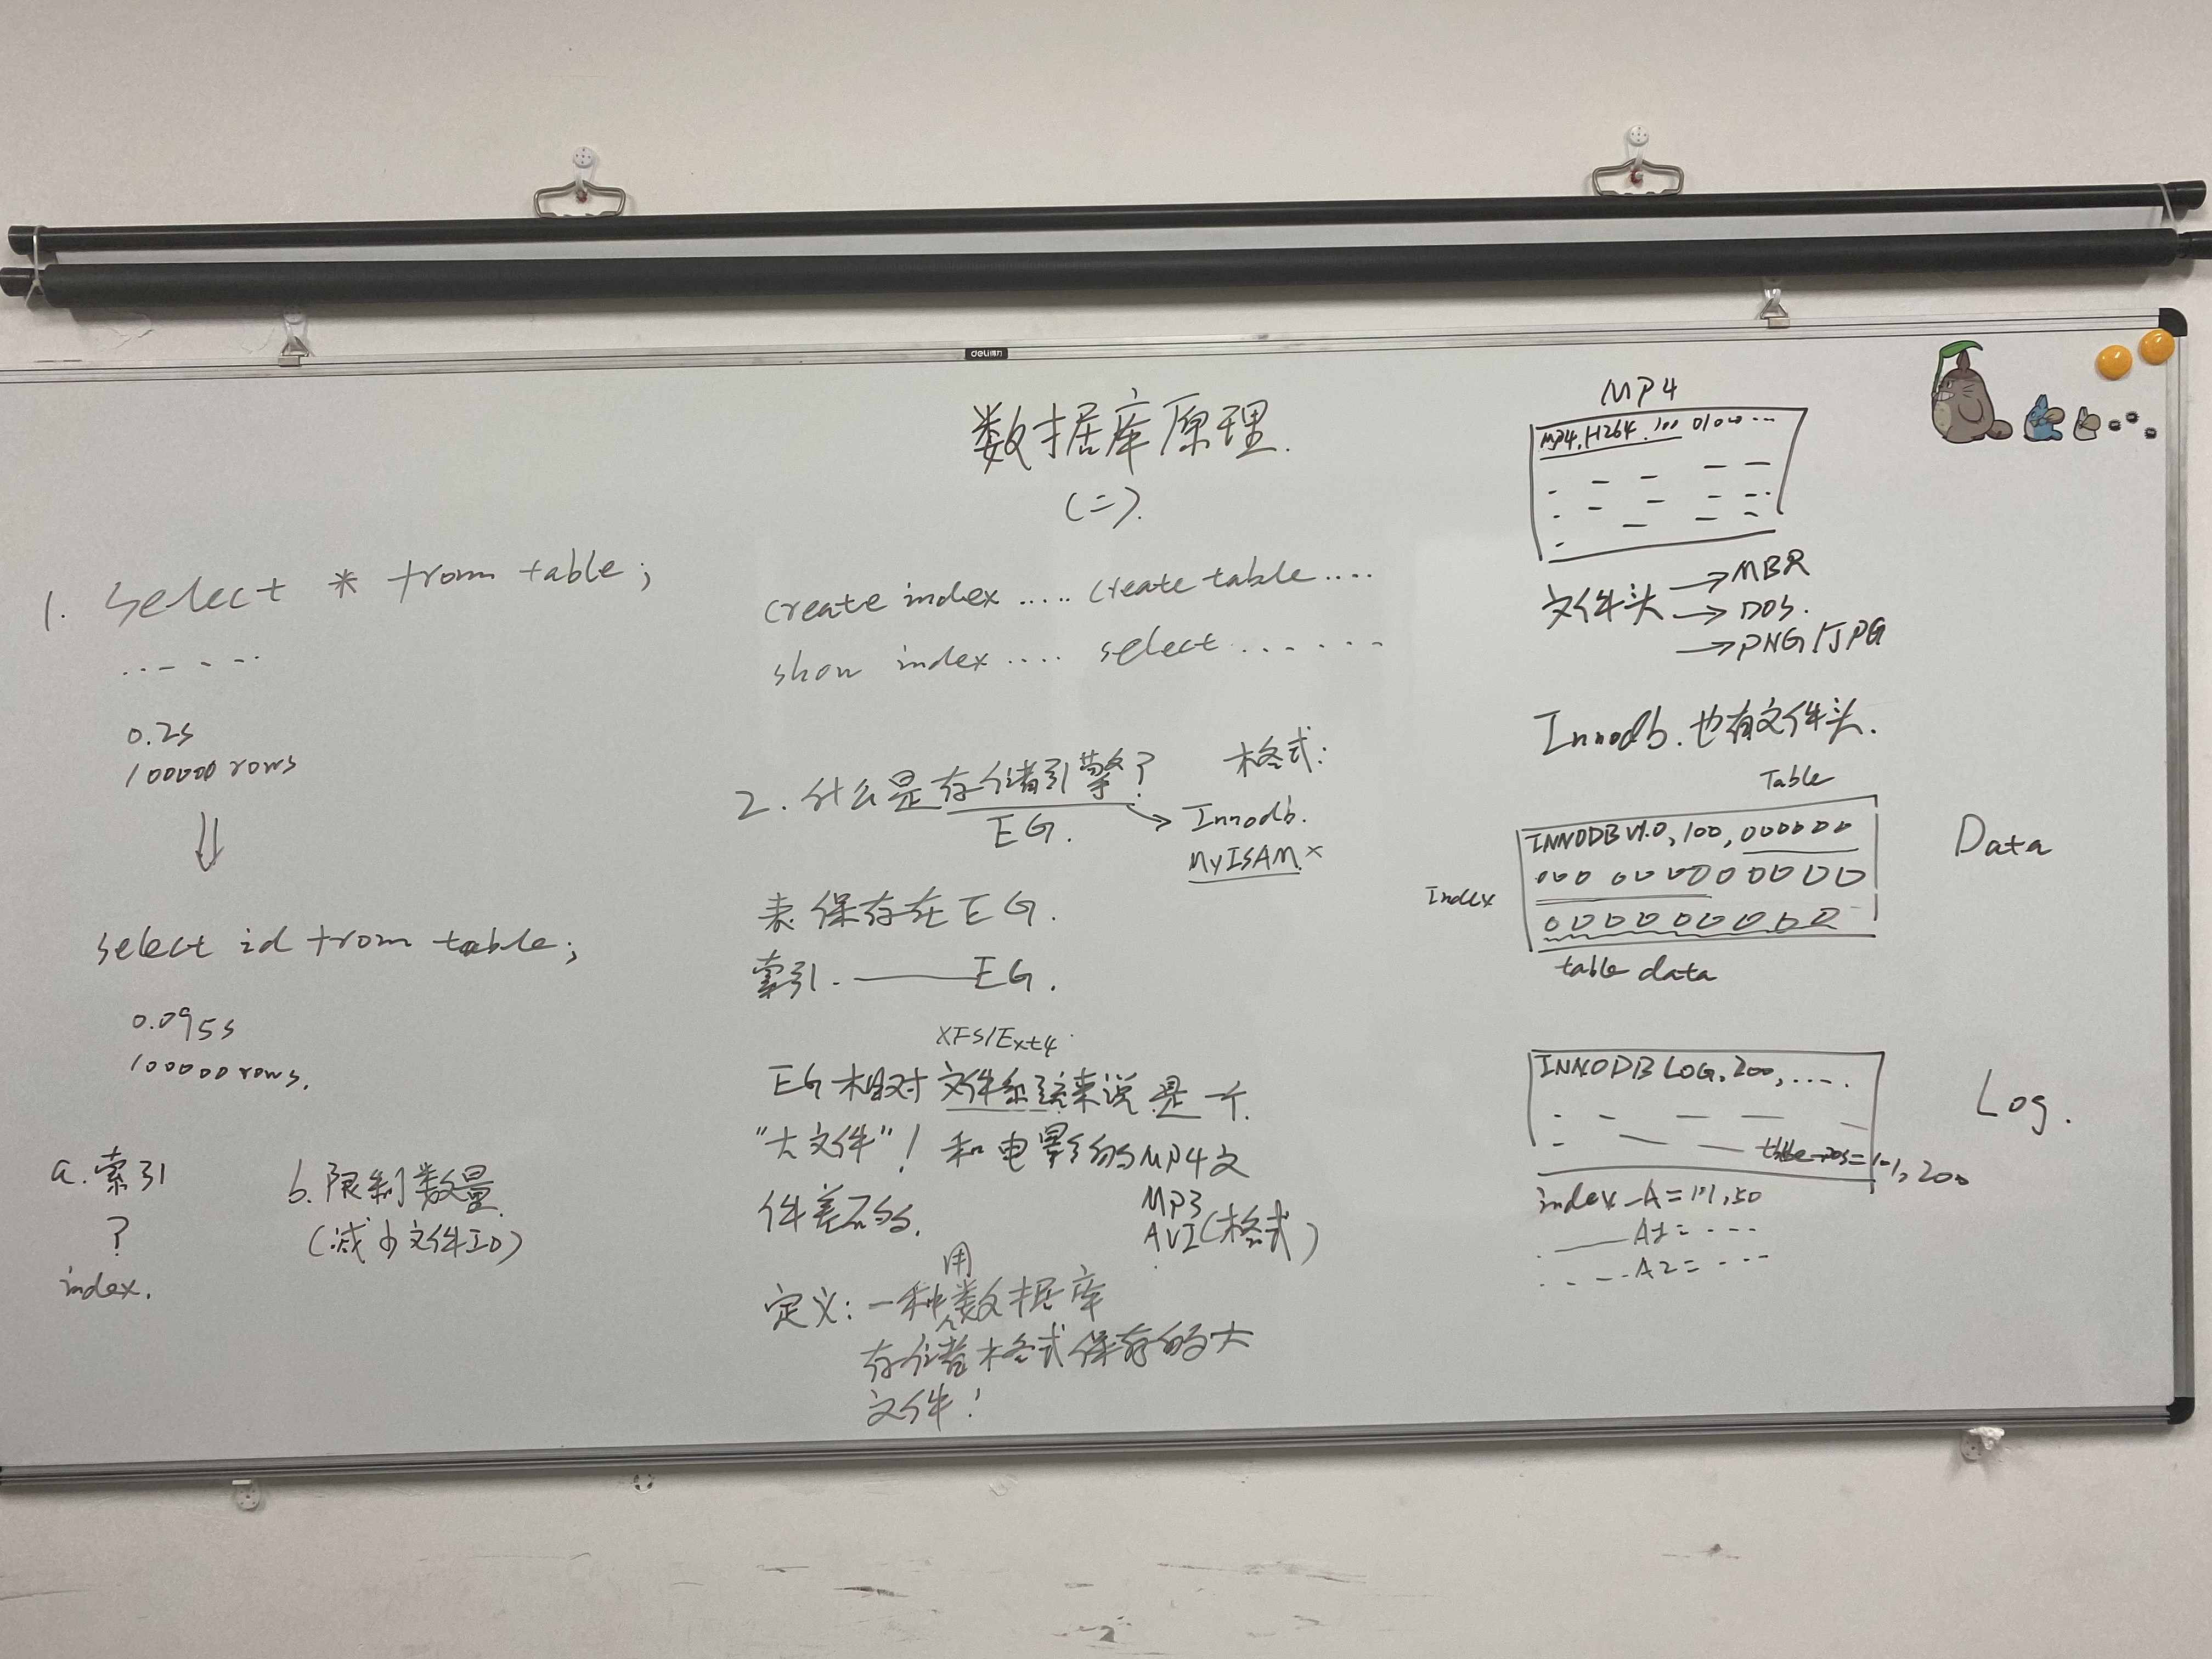 deli得力
数据库原理.
(二).
1. select * from table;
0.2s
100000 rows
select id from table;
0.095s
100000 rows.
a. 索引
?
index.
b. 限制数量
(减少文件IO)
create index ..... create table ....
show index .... select .......
2. 什么是存储引擎?
EG.
格式:
Innodb.
MyISAM ×
表保存在EG.
索引. —— EG.
XFS/Ext4
EG相对文件系统来说是一个
"大文件"! 和电影的MP4文
件差不多.
MP3
AVI(格式)
用
定义: 一种数据库
存储格式保存的大
文件!
MP4
MP4, H264, 100 0100 ...
文件头 → MBR
→ DOS.
→ PNG/JPG
Innodb. 也有文件头.
Table
INNODB V1.0, 100, 000000
000 00000 0000
Index
000000000
table data
Data
INNODB LOG, 200, .....
table_pos=101, 200
Log.
index_A = 101, 50
A1 = ---
A2 = ---